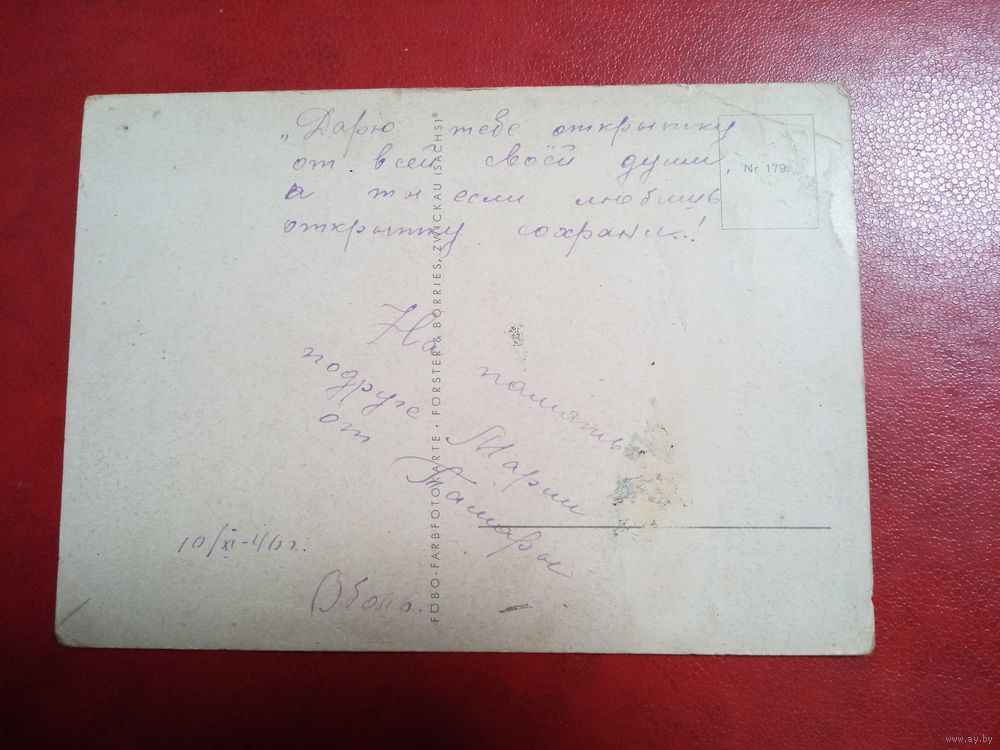 „Дарю тебе открытку
от всей своей души,
а ты если любишь
открытку сохрани..!
Nr. 179
На память
подруге Марии
от Тамары
10/XI-46г.
FÖBO-FARBFOTOKARTE · FÖRSTER & BORRIES, ZWICKAU (SACHS)
www.ay.by